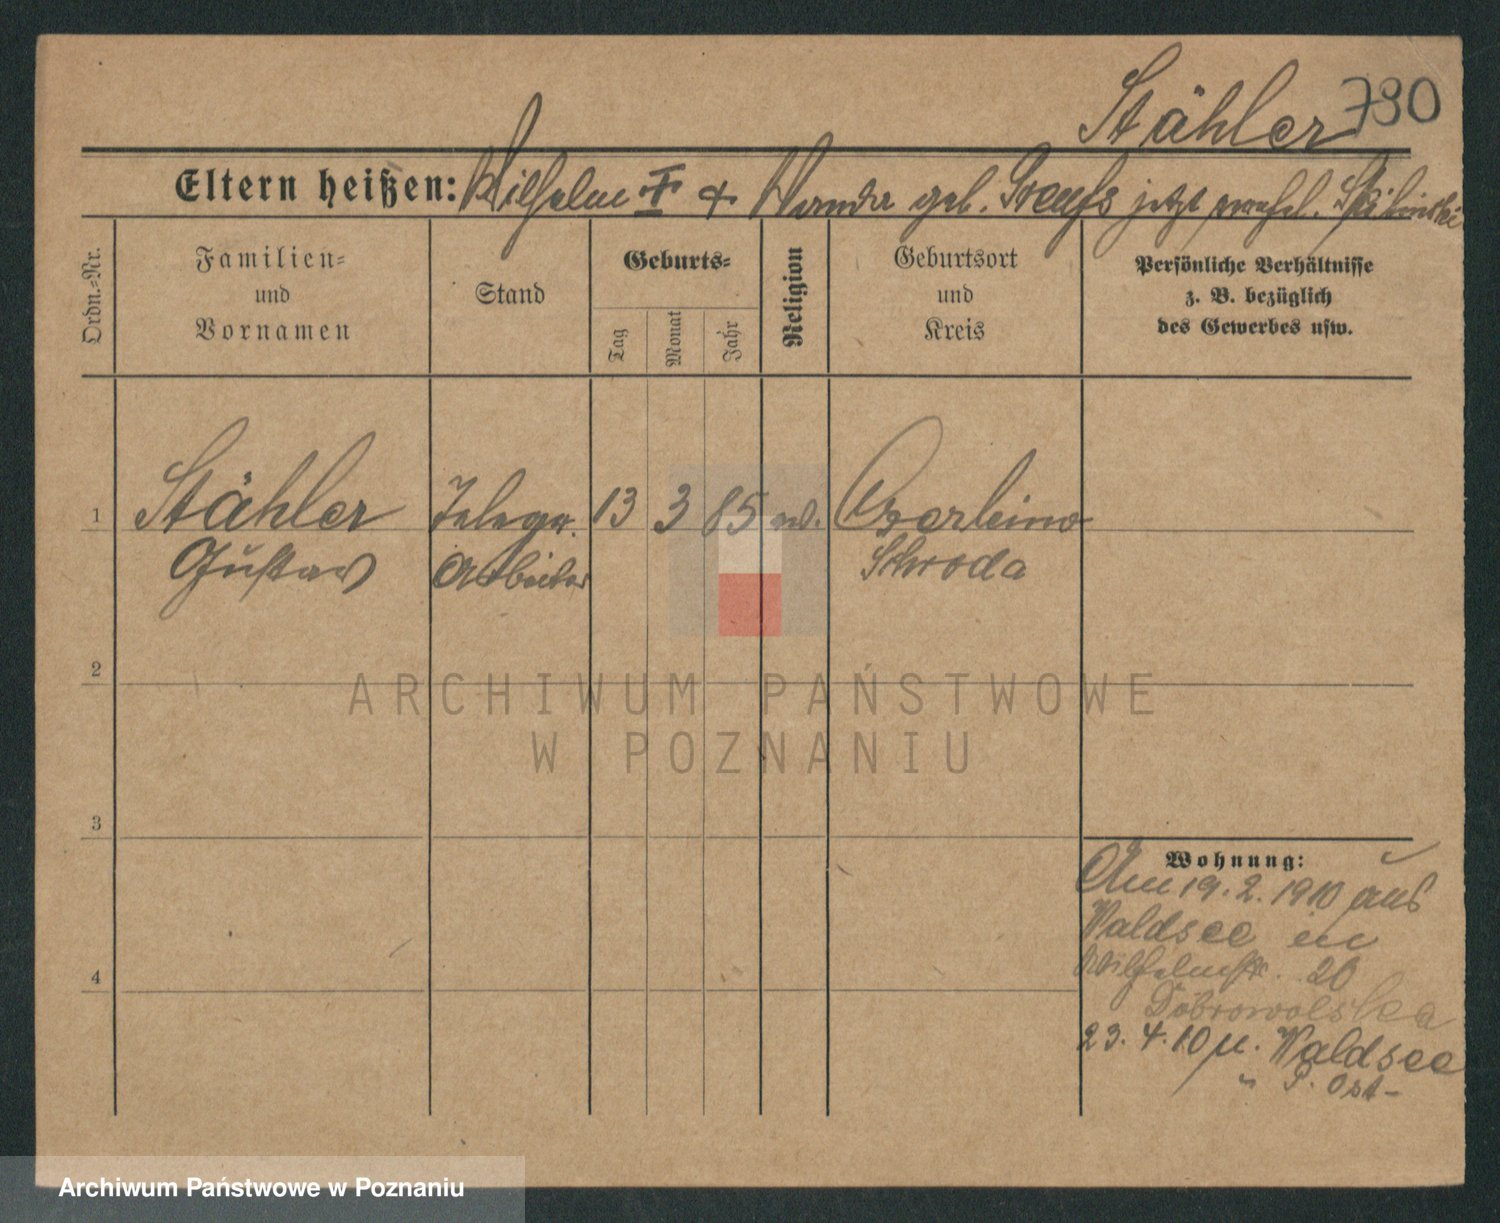 Stähler 780
Eltern heißen: Wilhelm I + Wanda geb. Preuſs jetzt verehel.
Ordn.-Nr.
Familien- und Vornamen
Stand
Geburts-
Tag
Monat
Jahr
Religion
Geburtsort und Kreis
Persönliche Verhältnisse
z. B. bezüglich
des Gewerbes usw.
1 Stähler Telegr. 13 3 85 ev. Czerleino
Gustav Arbeiter Schroda
2
ARCHIWUM PAŃSTWOWE
W POZNANIU
3
Wohnung:
Am 19. 2. 1910 aus
Waldsee in
Wilhelmstr. 20
Dobrowolska
4
23. 4. 10 n. Waldsee
" P. Ost-
Archiwum Państwowe w Poznaniu